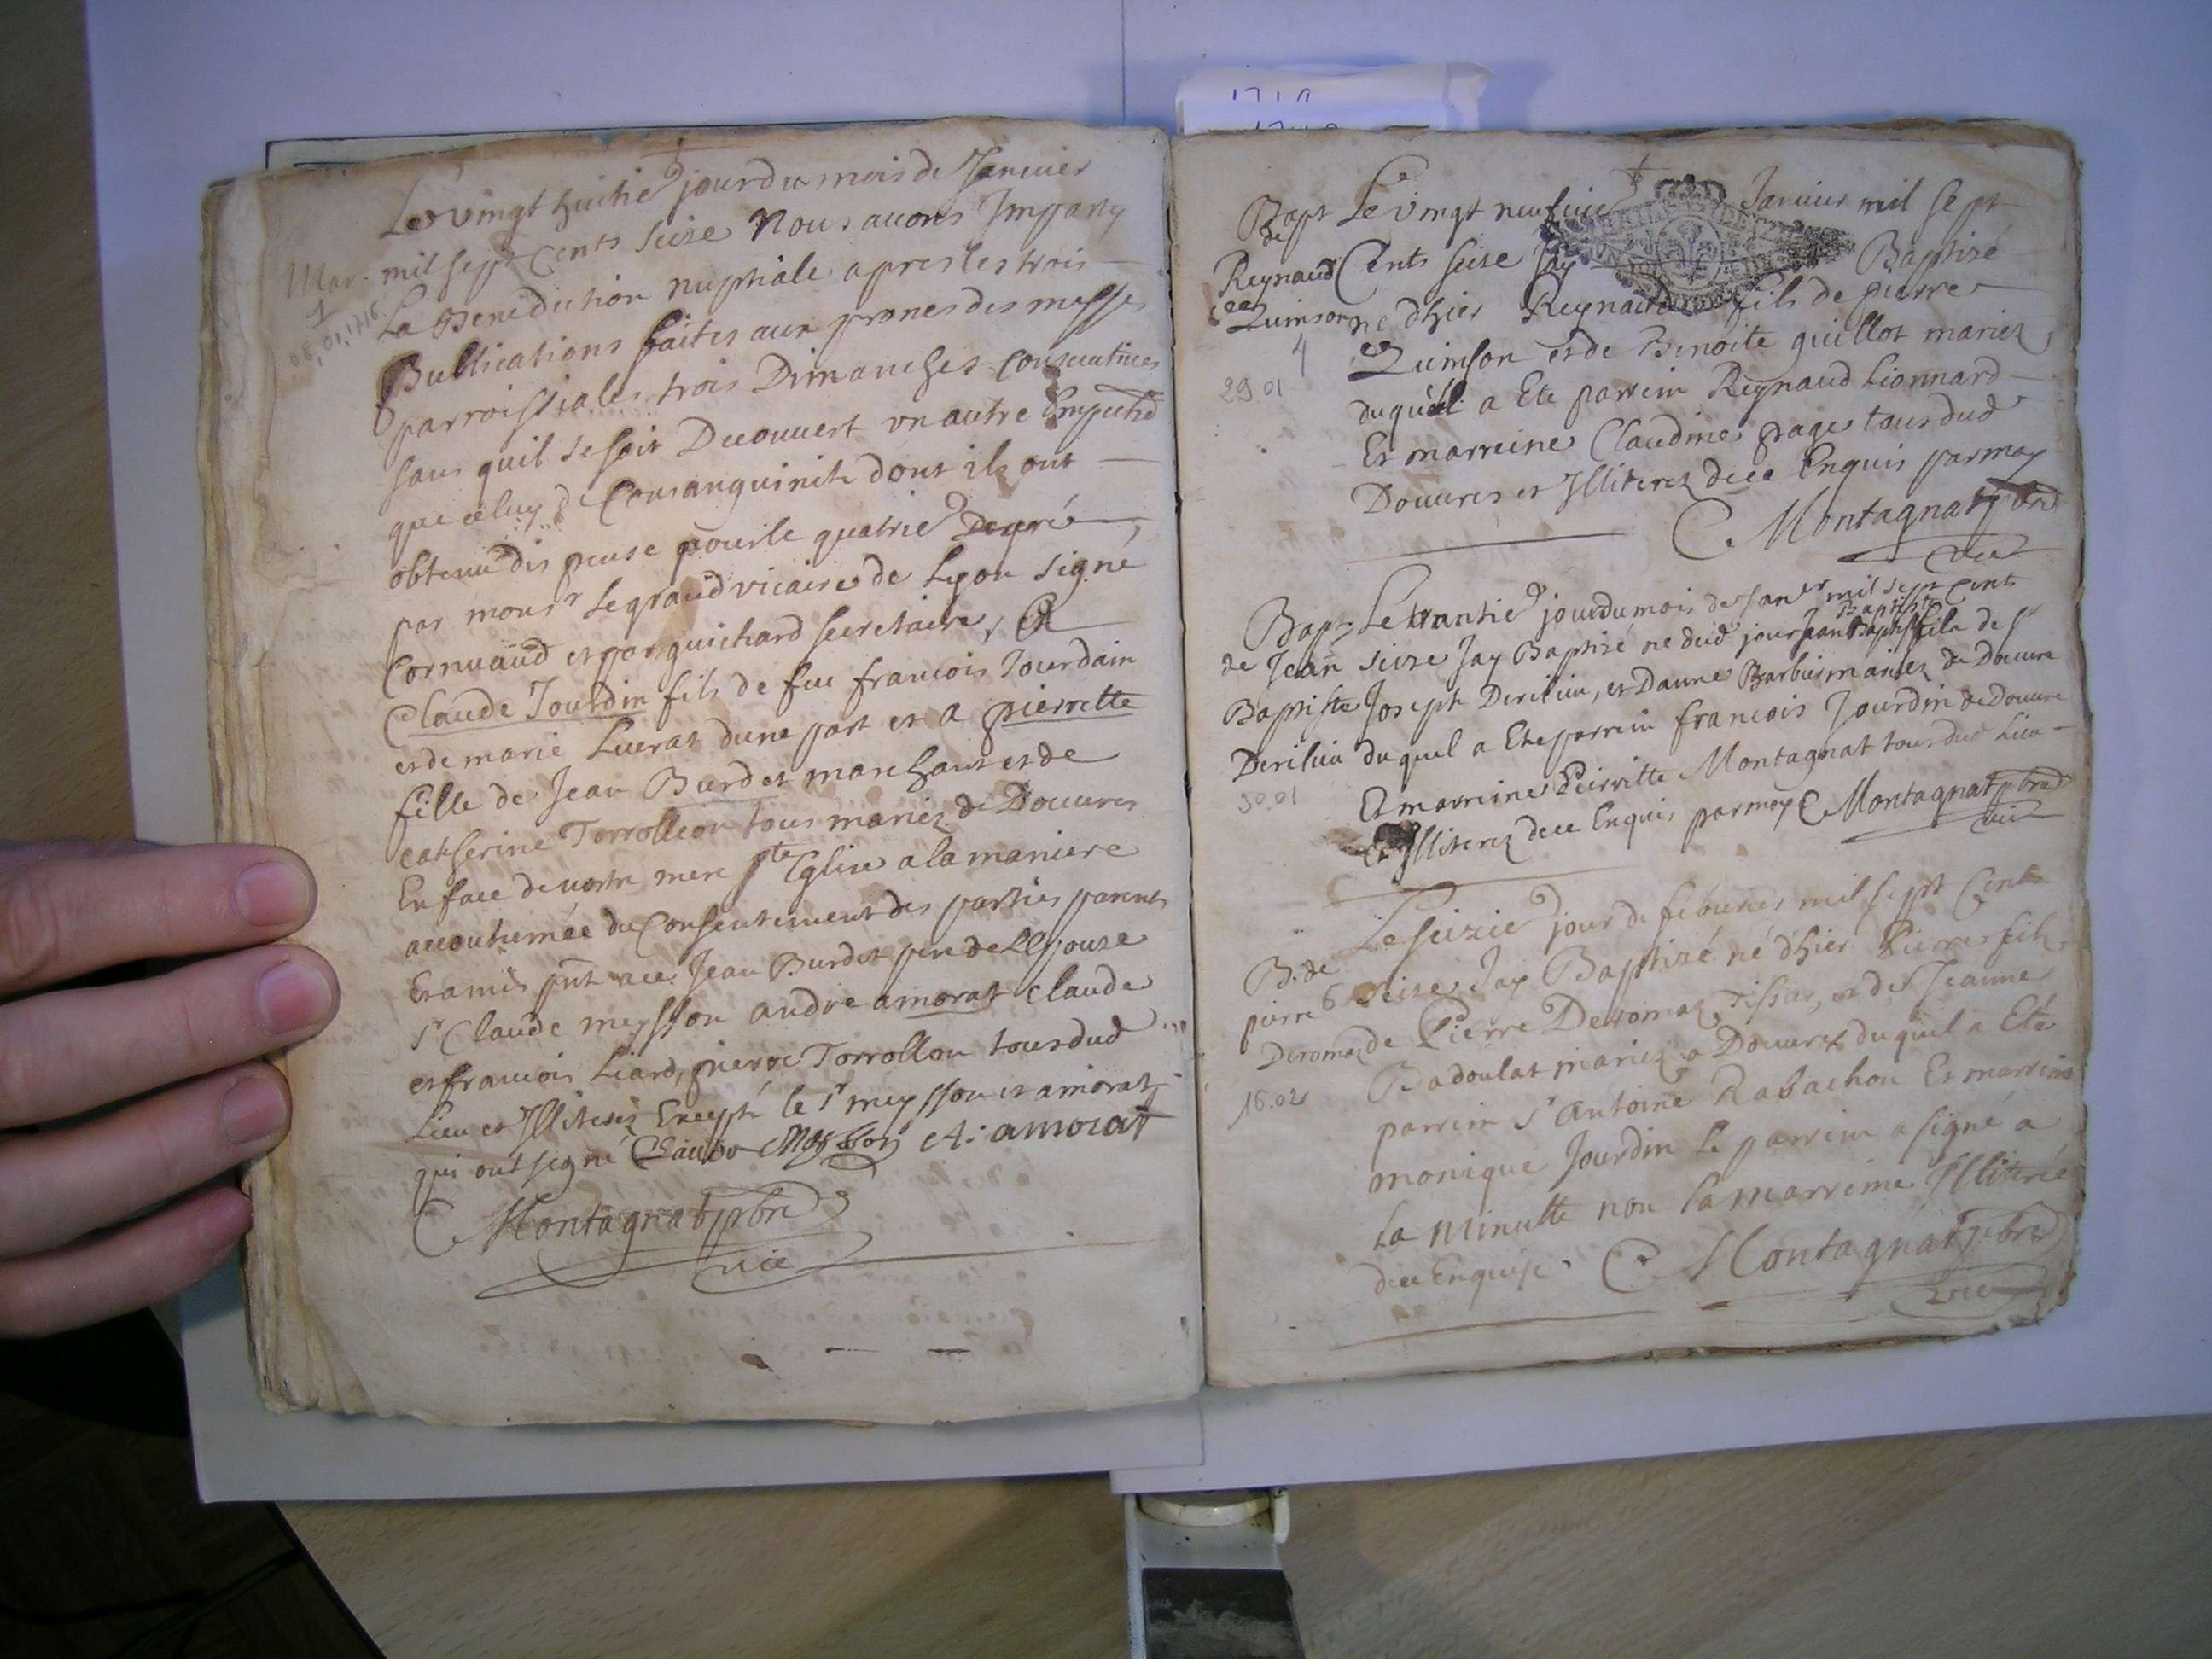 Le vingt huitie jour du mois de Janvier
mil sept Cents seize Nous avons Imparty
La Benediction nuptiale apres les trois
Publications faites aux prones des messes
parroissiales trois Dimanches consecutives
sans quil se soit Decouvert un autre Empechd
que celuy de Consanguinité dont ils ont
obtenu dispense pour le quatrie Degré
par monsr Le grand vicaire de Lyon signé
Cornuaud et par guichard secretaire, A
Claude Jourdin fils de feu francois Jourdain
et de marie Luerat dune part et a pierrette
fille de Jean Burdet marchant et de
catherine Torrollion tous mariez de Douvres
En face de nostre mere ste Eglise a la maniere
accoutumée du Consentement des parties parents
Et amis pnt avec Jean Burdet pere de LEpouse
sr Claude meysson andre amorat Claude
et francois Liard, pierre Torrollon tous dud
Lieu et Illiterez Excepté le sr meysson et amorat
qui ont signé Claude Meysson A: amorat
C Montagnat pbre
vic
Mar.
1
1716
17 10
Bapt Le vingt neufvie Janvier mil sept
de
Reynaud Cents seize Jay Baptizé
Quinson né dhier Reynaud fils de pierre
4
Quinson et de Benoite guillot mariez
29 01
duquel a Ete parrein Reynaud Lionnard
Et marreine Claudine page tous dud
Douvres et Illiterez de ce Enquis par moy
C Montagnat pbre
vic
Bapt Le trantie jour du mois de Janer mil sept Cents
Baptiste
de Jean seize Jay Baptizé né dud jour Jean Baptiste fils de sr
Baptiste Joseph Derilieu, et Danne Barbier mariez de Douvre
Derilieu duquel a Ete parrein francois Jourdin de Douvre
30.01
Et marreine Peirrette Montagnat tous dud Lieu
Et Illiterez de ce Enquis par moy C Montagnat pbre
vic
Le seizie jour de febvrier mil sept Cents
B. de
pierre 6 seize Jay Baptizé né dhier Pierre fils
Deromaz de Pierre Deromaz Tissier, et de Jeanne
Badoulat mariez a Douvres duquel a Eté
16.02
parrein sr Antoine Rabachon Et marreine
monique Jourdin Le parrein a signé a
La Minutte non La marreine Illiterée
de ce Enquise. C Montagnat pbre
vic